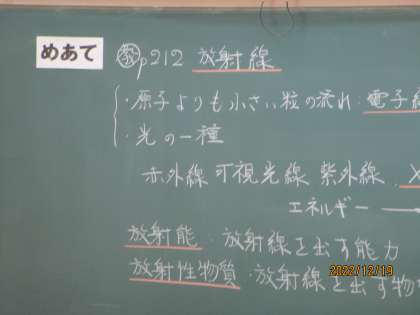 めあて
教p212 放射線
・原子よりも小さい粒の流れ:電子
・光の一種
赤外線 可視光線 紫外線
エネルギー →
放射能:放射線を出す能力
放射性物質:放射線を出す物
2022/12/19